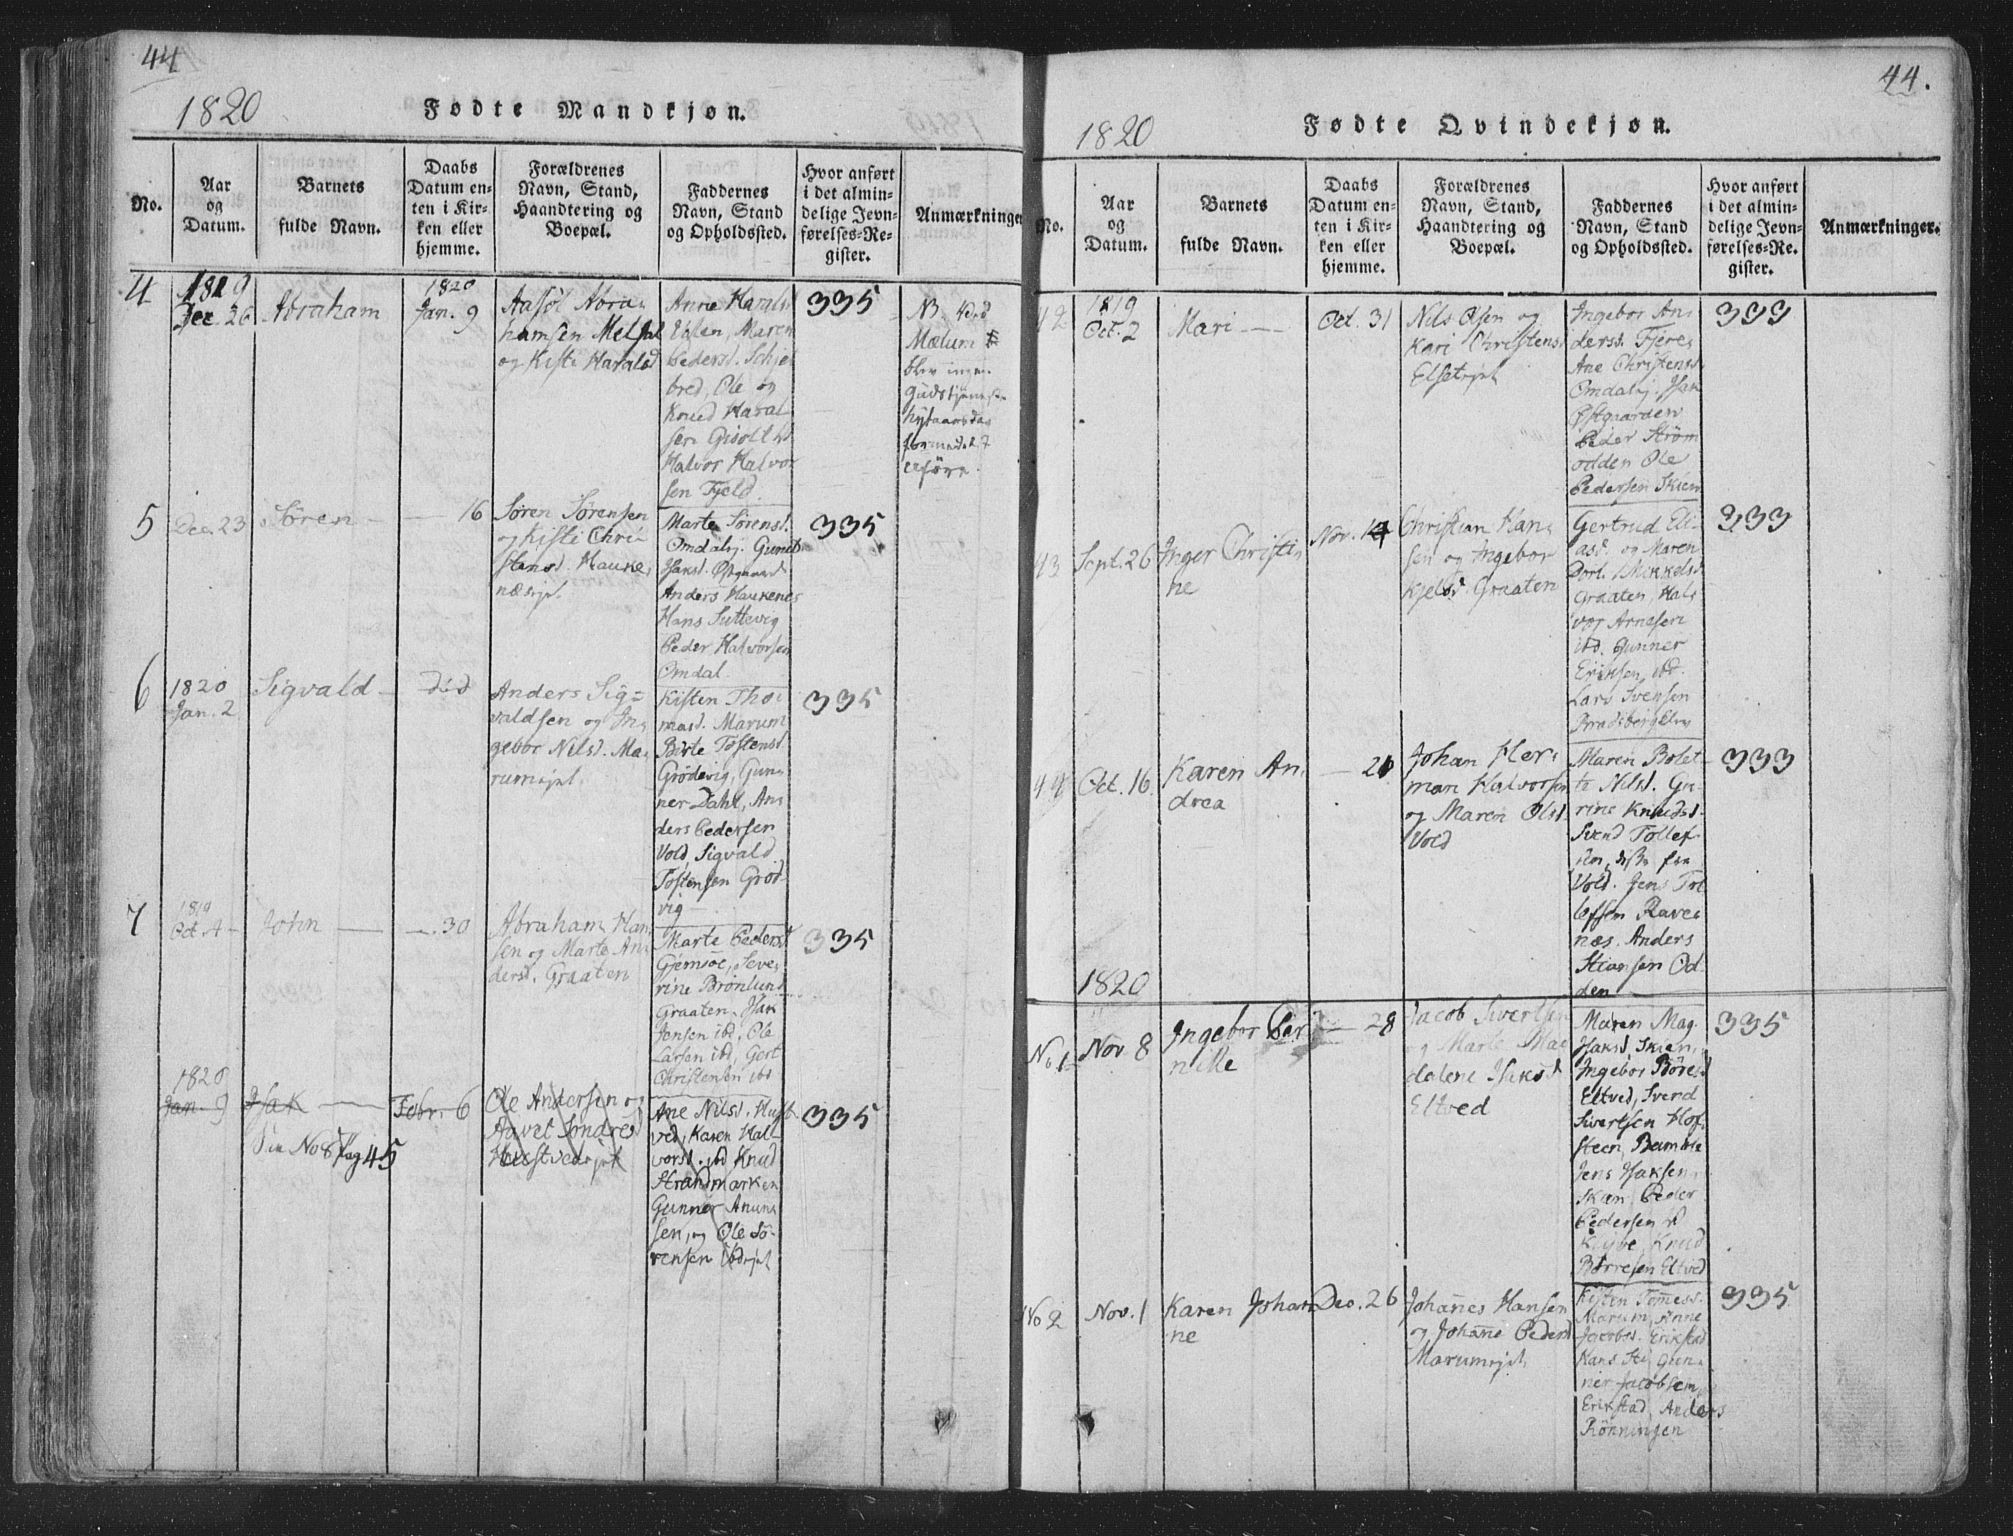 44
1820
Fødte Mandkjøn.
No.
Aar
og
Datum.
Barnets
fulde Navn.
Daabs
Datum en-
ten i Kir-
ken eller
hjemme.
Forældrenes
Navn, Stand,
Haandtering og
Boepæl.
Faddernes
Navn, Stand
og Opholdssted.
Hvor anført
i det almin-
delige Jevn-
førelses-Re-
gister.
Anmærkninger
4
1819
Dec. 26
Abraham
1820
Jan. 9
Abra-
hamsen
og Kisti Haralsd
Anne Haralsd
Maren
Pedersd. Schje
bred, Ole og
Knud Haral
sen
Halvor Halvor
sen Fjeld.
335
NB. Ved
Mælum
blev ingen
Gudstjeneste
5
Dec 23
Søren
16
Søren Sørensen
og Kisti Chri-
stensd. Hauke
næsejet.
Marte Sørensd.
Omdalej. Gunil
Isaksd. Østgaard
Anders Haukenes
Hans Suttevig
Peder Halvorsen
Omdal.
335
6
1820
Jan. 2
Sigvald
did
Anders Sig=
valdsen og In
gebor Nilsd. Ma
rumejet.
Kisten Tho
masd. Marum
Birte Tostensd.
Grødevig, Gun
ner Dahl, An
ders Pedersen
Vold, Sigvald
Tostensen Grod-
vig
335
7
1819
Oct. 4
John
30
Abraham Han
sen og Marte An
dersd. Graaten
Marte Pedersd
Gjemsøe, Seve
rine Brønlund
Graaten. Isak
Jensen ibd, Ole
Larsen ibd, Gert
Christensen ibd
335
1820
Jan. 9
Isak
Febr. 6
No 8 Pag 45
Ole Andersen og
Aavet Søndred
Ane Nilsd. Hust
ved, Karen Hal-
vorsd. ibd Knud
Strandmarken
Gunner Anun
sen, og Ole Sö-
rensen ibdejet
335
44.
1820
Fødte Qvindekjøn.
No.
Aar
og
Datum.
Barnets
fulde Navn.
Daabs
Datum en-
ten i Kir-
ken eller
hjemme.
Forældrenes
Navn, Stand,
Haandtering og
Boepæl.
Faddernes
Navn, Stand
og Opholdssted.
Hvor anført
i det almin-
delige Jevn-
førelses-Re-
gister.
Anmærkninger.
42
1819
Oct. 2
Mari
Oct. 31
Nils Olsen og
Kari Christensd
Elsetejet
Ingebor An
dersd. Fjere
Ane Christensd
Omdalej. Isak
Østgaarden
Peder Strøm
odden Ole
Pedersen Skien
333
43
Sept. 26
Inger Christi
ne
Nov. 14
Christian Han
sen og Ingebor
Kjelsd. Graaten
Gertrud Eli-
asd. og Maren
Dort. Mikkelsd
Graaten, Hal
vor Arnesen
ibd. Gunner
Eriksen, ibd.
Lars Svensen
333
44
Oct. 16
Karen An
drea
21
Johan Her
man Halvorsen
og Maren Olsd
Vold
Maren Bolet
te Nilsd. Gu
rine Knudsd.
Svend Tollef
sen, disse fra
Vold. Jens Tol
lefsen Ravne
næs. Anders
Stiansen Od
den
333
1820
No 1
Nov 8
Ingebor Per
nille
28
Jacob Sivertsen
og Marte Mag
dalene Isaksd
Eltved
Maren Mag.
Isaksd Skien,
Ingebor Börresd
Eltved, Svend
Sivertsen Hof
steen, Bamble
Jens Isaksen
Skien, Peder
Pedersen
Knud
Börresen Eltved
335
No 2
Nov. 1
Karen Johan
ne
Dec. 26
Johannes Hansen
og Johanne Pedersd
Marumejet
Kisten
Marum, Anne
Jacobsd. Erikstad
Hans Sti, Gun
ner Jacobsen
Erikstad, Anders
Rönningen
335